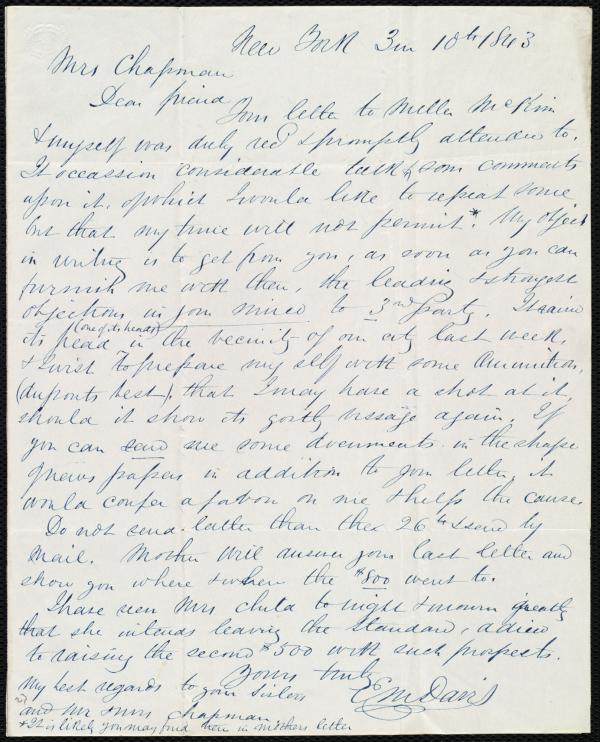 New York 3m 10th 1843
Mrs Chapman
Dear friend
Your letter to Miller McKim
& myself was duly recd & promptly attended to.
It occassion considerable talk & som comments
upon it, of which I would like to repeat some
but that my time will not permit.* My object
in writing is to get from you, as soon as you can
furnish me with them, the leading & strongest
objections in your mind to 3rd party. It raised
(one of its heads)
its head in the vecinity of our city last week,
& I wish to prepare my self with some Ammunition,
(duponts best), that I may have a shot at it,
should it show its gostly vissage again. If
you can send me some documents in the shape
of news papers in addition to your letter, it
would confer a favor on me & help the cause.
Do not send latter than the 26th & send by
Mail. Mother will answer your last letter and
show you where & when the $800 went to.
I have seen Mrs Child to night & mourn greatly
that she intends leaving the Standard, adieu
to raising the second $500 with such prospects.
Yours truly
My best regards to your Sisters
E M Davis
and Mr & Mrs Chapman
*It is likely you may find them in mothers letter